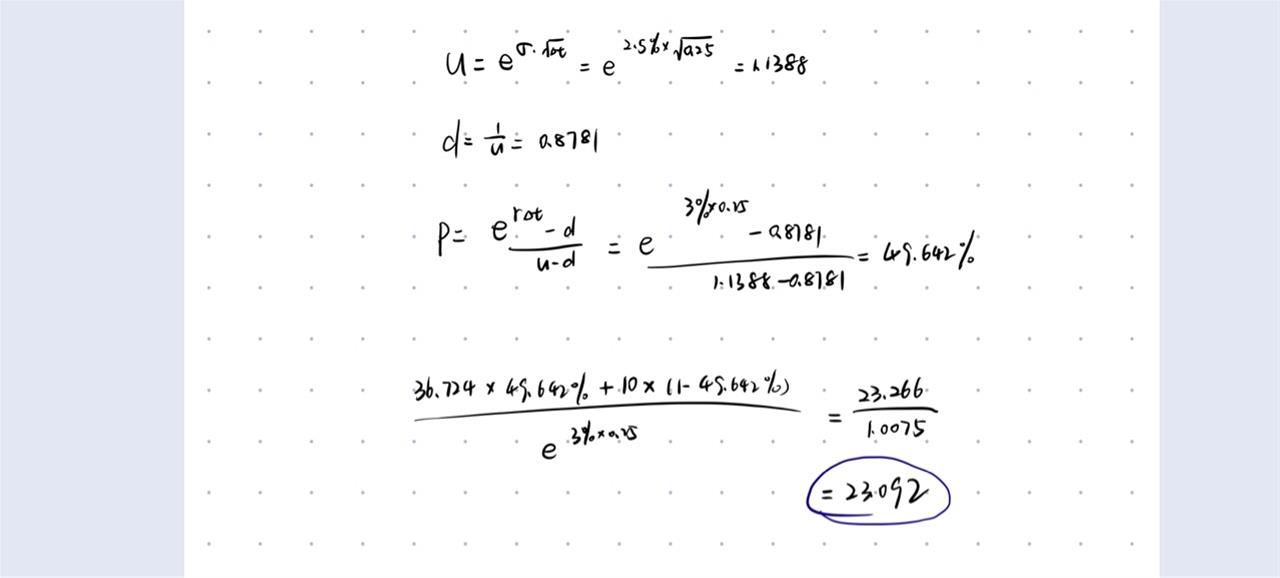 u = e^{σ·√Δt} = e^{2.5%×√0.25} = 1.1388
d = 1/u = 0.8781
P = (e^{rΔt} - d)/(u-d) = (e^{3%×0.25} - 0.8781)/(1.1388-0.8781) = 49.642%
(36.724 × 49.642% + 10 × (1- 49.642%))/e^{3%×0.25} = 23.266/1.0075
= 23.092